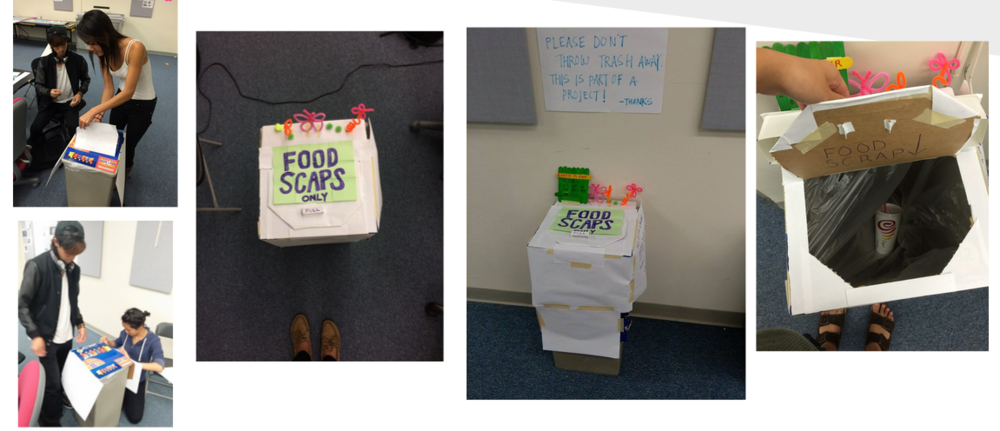 FOOD
SCAPS
ONLY
PULL
PLEASE DON'T
THROW TRASH AWAY
THIS IS PART OF A
PROJECT!
-THANKS
FOOD
SCAPS
ONLY
FOOD
SCRAPS